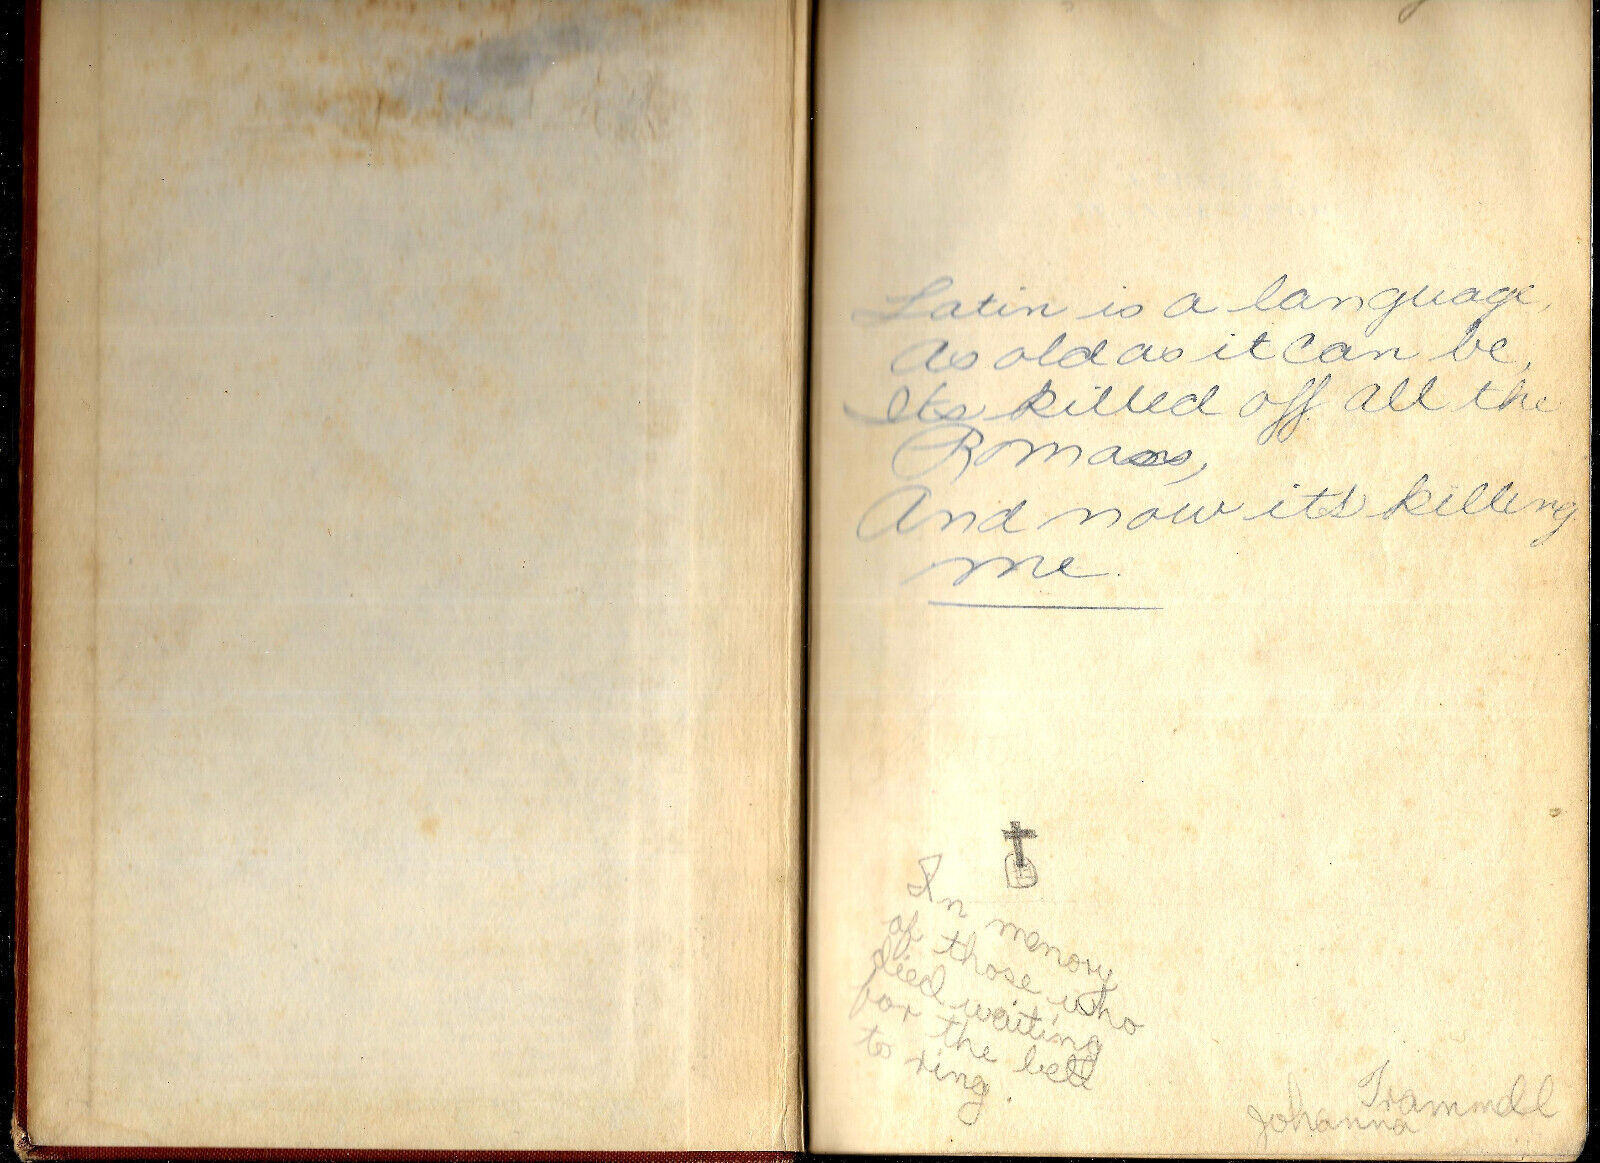 Latin is a language,
As old as it can be,
Its killed off all the
Romans,
And now it's killing
me.
In memory
of those who
died waiting
for the bell
to ring.
Trammell
Johanna